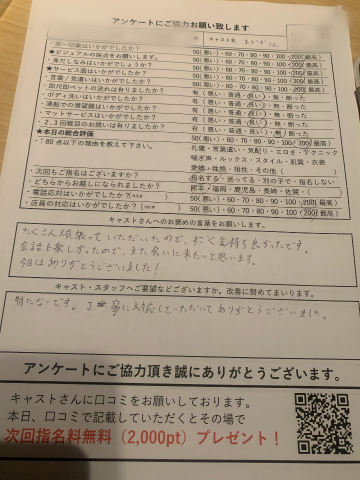 アンケートにご協力お願い致します
キャスト名
・第一印象はいかがでしたか?
★ビジュアルの採点をお願いします。 50(悪い)・60・70・80・90・100・200(最高)
・身だしなみはいかがでしょうか? 50(悪い)・60・70・80・90・100・200(最高)
★サービス面はいかがでしたか? 50(悪い)・60・70・80・90・100・200(最高)
・言葉/気遣いはいかがでしたか? 50(悪い)・60・70・80・90・100・200(最高)
・即尺即ベットの流れは有りましたか? 有(悪い・普通・良い)・無・断った
・ボディ洗いはいかがでしたか? 有(悪い・普通・良い)・無・断った
・湯船での潜望鏡はいかがでしたか? 有(悪い・普通・良い)・無・断った
・マットサービスはいかがでしたか? 有(悪い・普通・良い)・無・断った
・2、3回戦目のお誘いは有りましたか? 有(悪い・普通・良い)・無・断った
★本日の総合評価 50(悪い)・60・70・80・90・100・200(最高)
・「80点以下の理由を教えて下さい。 礼儀・言葉遣い・気配り・エロさ・テクニック
喘ぎ声・ルックス・スタイル・肌質・衣装
愛嬌・性格・相性・その他(
・次回もご指名はございますか? 指名する・迷ってる・別の子で・指名しない
・どちらからお越しになられましたか? 熊本・福岡・鹿児島・長崎・佐賀・(
・電話応対はいかがでしたか? 50(悪い)・60・70・80・90・100・200(最高)
・店員の対応はいかがでしたか? 50(悪い)・60・70・80・90・100・200(最高)
キャストさんへのお褒めの言葉をお願いします。
たくさん頑張っていただいたので、すごく気持ち良かったです。
会話も楽しかったので、また会いに来たいと思います。
今日はありがとうございました!
キャスト・スタッフへご要望などございますか。改善に努めてまいります。
特にないです。丁寧に対応していただいてありがとうございました。
アンケートにご協力頂き誠にありがとうございます。
キャストさんに口コミをお願いしております。
本日、口コミで記載していただくとその場で
次回指名料無料(2,000pt)プレゼント!